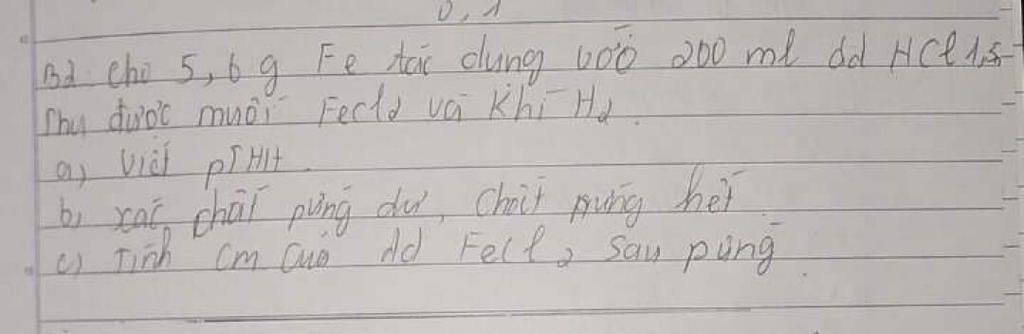 0,1
B2. Cho 5,6 g Fe tác dụng với 200 ml dd HCl 1,5
Thu được muối FeCl2 và khí H2.
a) Viết PTHH.
b) xác chất pứng dư, chất pứng hết.
c) Tính Cm của dd FeCl2 sau pứng